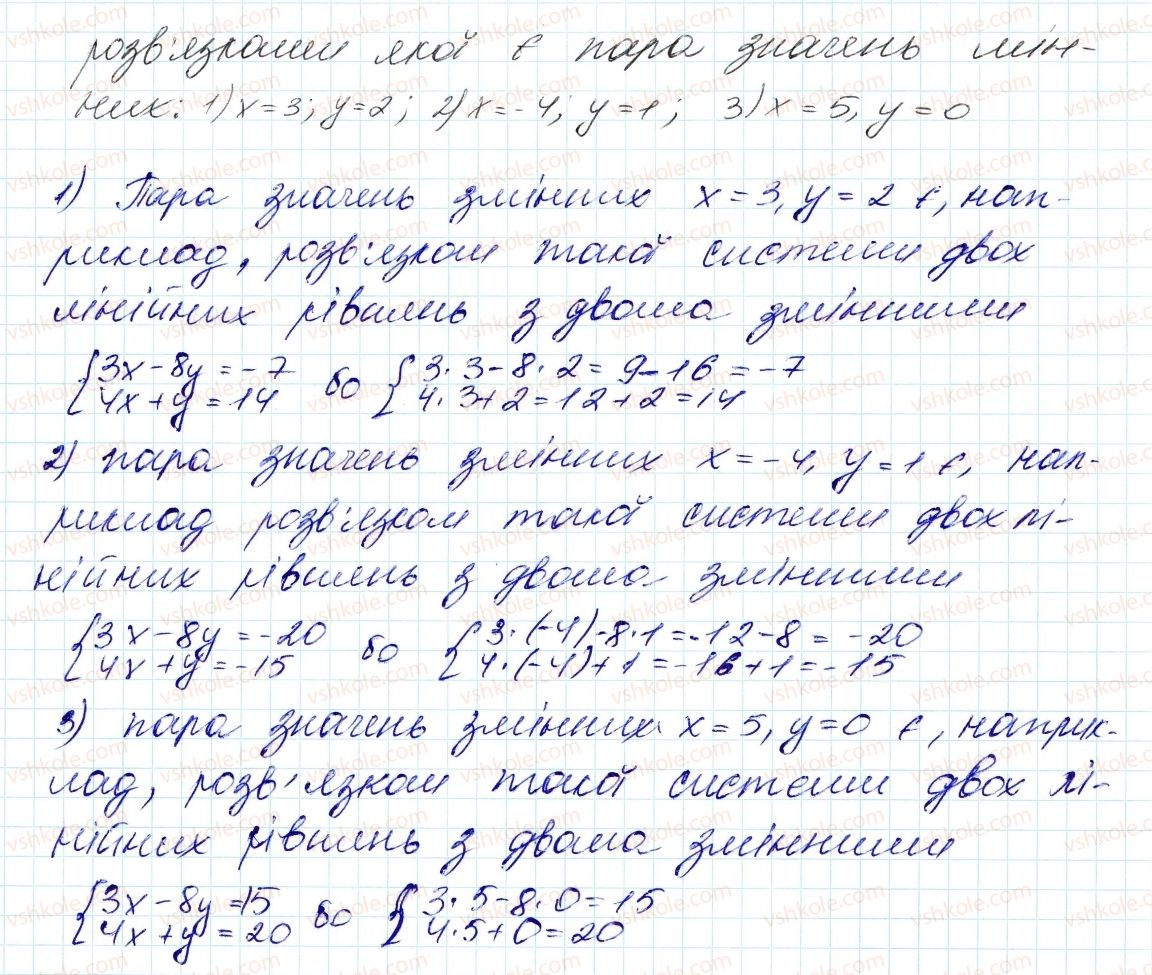 розв'язками якої є пара значень мін-
них: 1) x=3; y=2; 2) x=-4; y=1; 3) x=5, y=0
1) Пара значень змінних x=3, y=2 є, нап-
риклад, розв'язком такої системи двох
лінійних рівнянь з двома змінними
{3x-8y=-7 бо {3·3-8·2=9-16=-7
4x+y=14 4·3+2=12+2=14
2) пара значень змінних x=-4, y=1 є, нап-
риклад розв'язком такої системи двох лі-
нійних рівнянь з двома змінними
{3x-8y=-20 бо {3·(-4)-8·1=-12-8=-20
4x+y=-15 4·(-4)+1=-16+1=-15
3) пара значень змінних x=5, y=0 є, наприк-
лад, розв'язком такої системи двох лі-
нійних рівнянь з двома змінними
{3x-8y=15 бо {3·5-8·0=15
4x+y=20 4·5+0=20